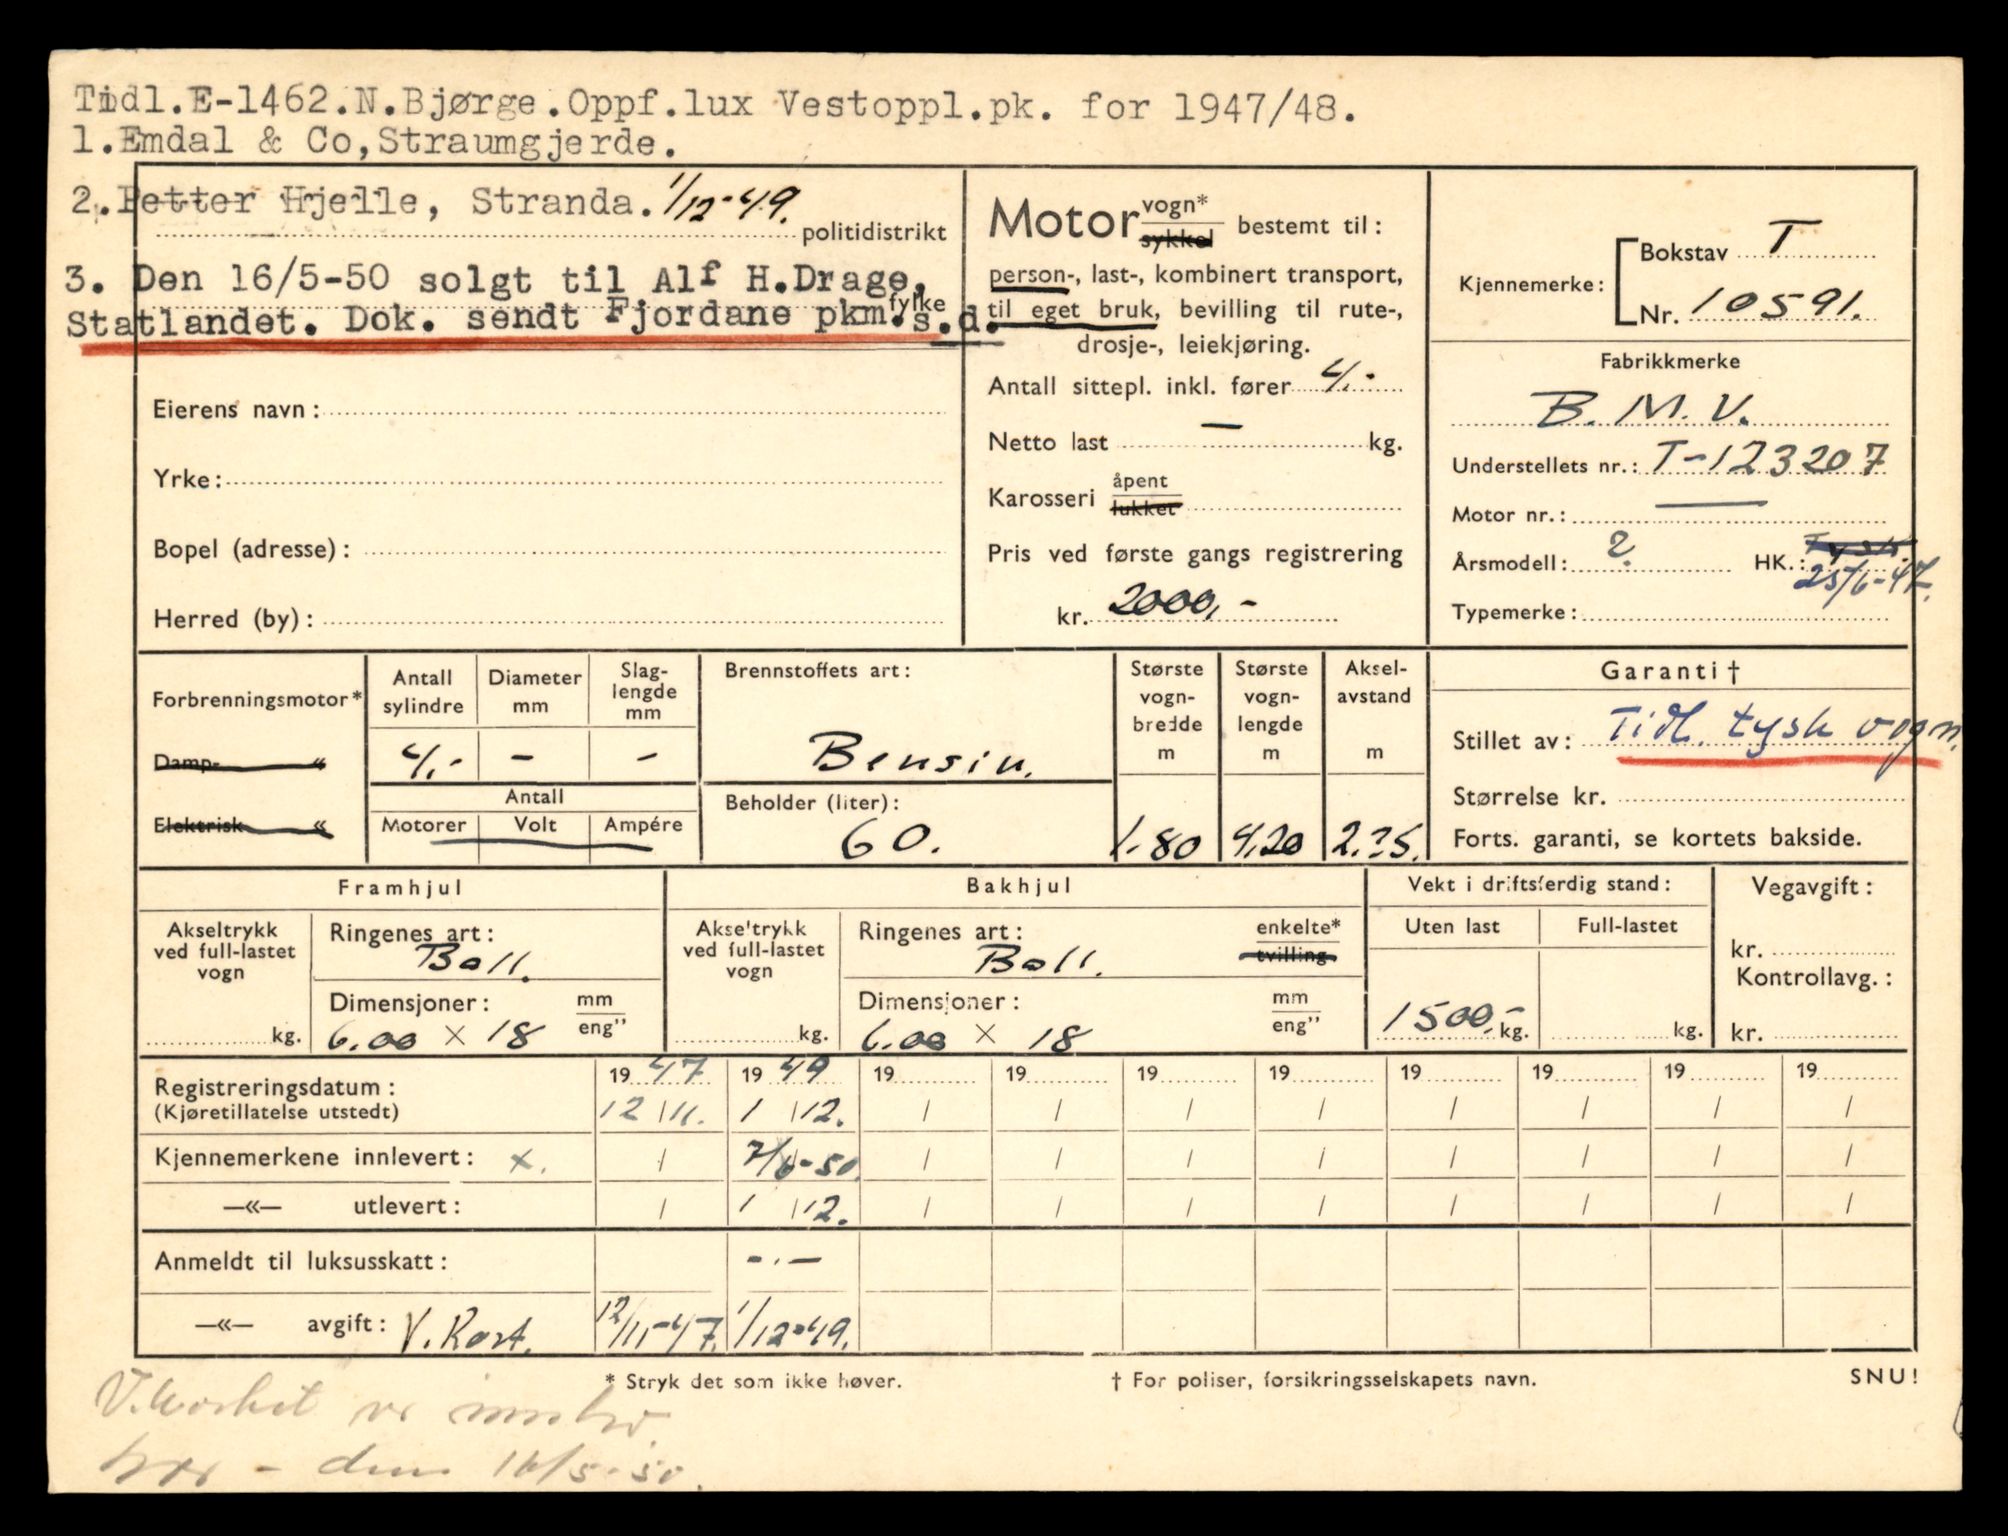 Tidl.E-1462.N.Bjørge.Oppf.lux Vestoppl.pk. for 1947/48.
1.Emdal & Co,Straumgjerde.
2.Petter Hjelle, Stranda. 1/12-49.
politidistrikt
3. Den 16/5-50 solgt til Alf H.Drage,
fylke
Statlandet. Dok. sendt Fjordane pkm.s.d.
Eierens navn:
Yrke:
Bopel (adresse):
Herred (by):
Motor vogn* sykkel bestemt til:
person-, last-, kombinert transport,
til eget bruk, bevilling til rute-,
drosje-, leiekjøring.
Antall sittepl. inkl. fører 4.-
Netto last — kg.
Karosseri åpent lukket
Pris ved første gangs registrering
kr. 2000,-
Kjennemerke: Bokstav T
Nr. 10591.
Fabrikkmerke
B.M.V.
Understellets nr.: T-123207
Motor nr.: —
Årsmodell: ? HK.: Tysk.
25/6-47.
Typemerke:
Forbrenningsmotor*
Damp- «
Elektrisk «
Antall sylindre
4.-
Diameter mm
-
Slag-lengde mm
-
Antall
Motorer Volt Ampére
Brennstoffets art:
Bensin.
Beholder (liter):
60.
Største vogn-bredde m
1.80
Største vogn-lengde m
4.20
Aksel-avstand m
2.75.
Garanti †
Stillet av: Tidl. tysk vogn.
Størrelse kr.
Forts. garanti, se kortets bakside.
Framhjul
Akseltrykk ved full-lastet vogn
kg.
Ringenes art:
Ball.
Dimensjoner: mm eng"
6.00 × 18
Bakhjul
Akseltrykk ved full-lastet vogn
kg.
Ringenes art: enkelte* tvilling
Ball.
Dimensjoner: mm eng"
6.00 × 18
Vekt i driftsferdig stand:
Uten last Full-lastet
1500.- kg. kg.
Vegavgift:
kr.
Kontrollavg.:
kr.
Registreringsdatum: 1947 1949 19 19 19 19 19 19 19 19
(Kjøretillatelse utstedt) 12/11. 1/12. / / / / / / / /
Kjennemerkene innlevert: x. / 7/6-50. / / / / / / / /
—«— utlevert: / 1/12. / / / / / / / /
Anmeldt til luksusskatt: -.-
—«— avgift: V.Kort. 12/11-47. 1/12-49.
* Stryk det som ikke høver.
† For poliser, forsikringsselskapets navn.
SNU!
V.kortet
her - den 16/5-50.